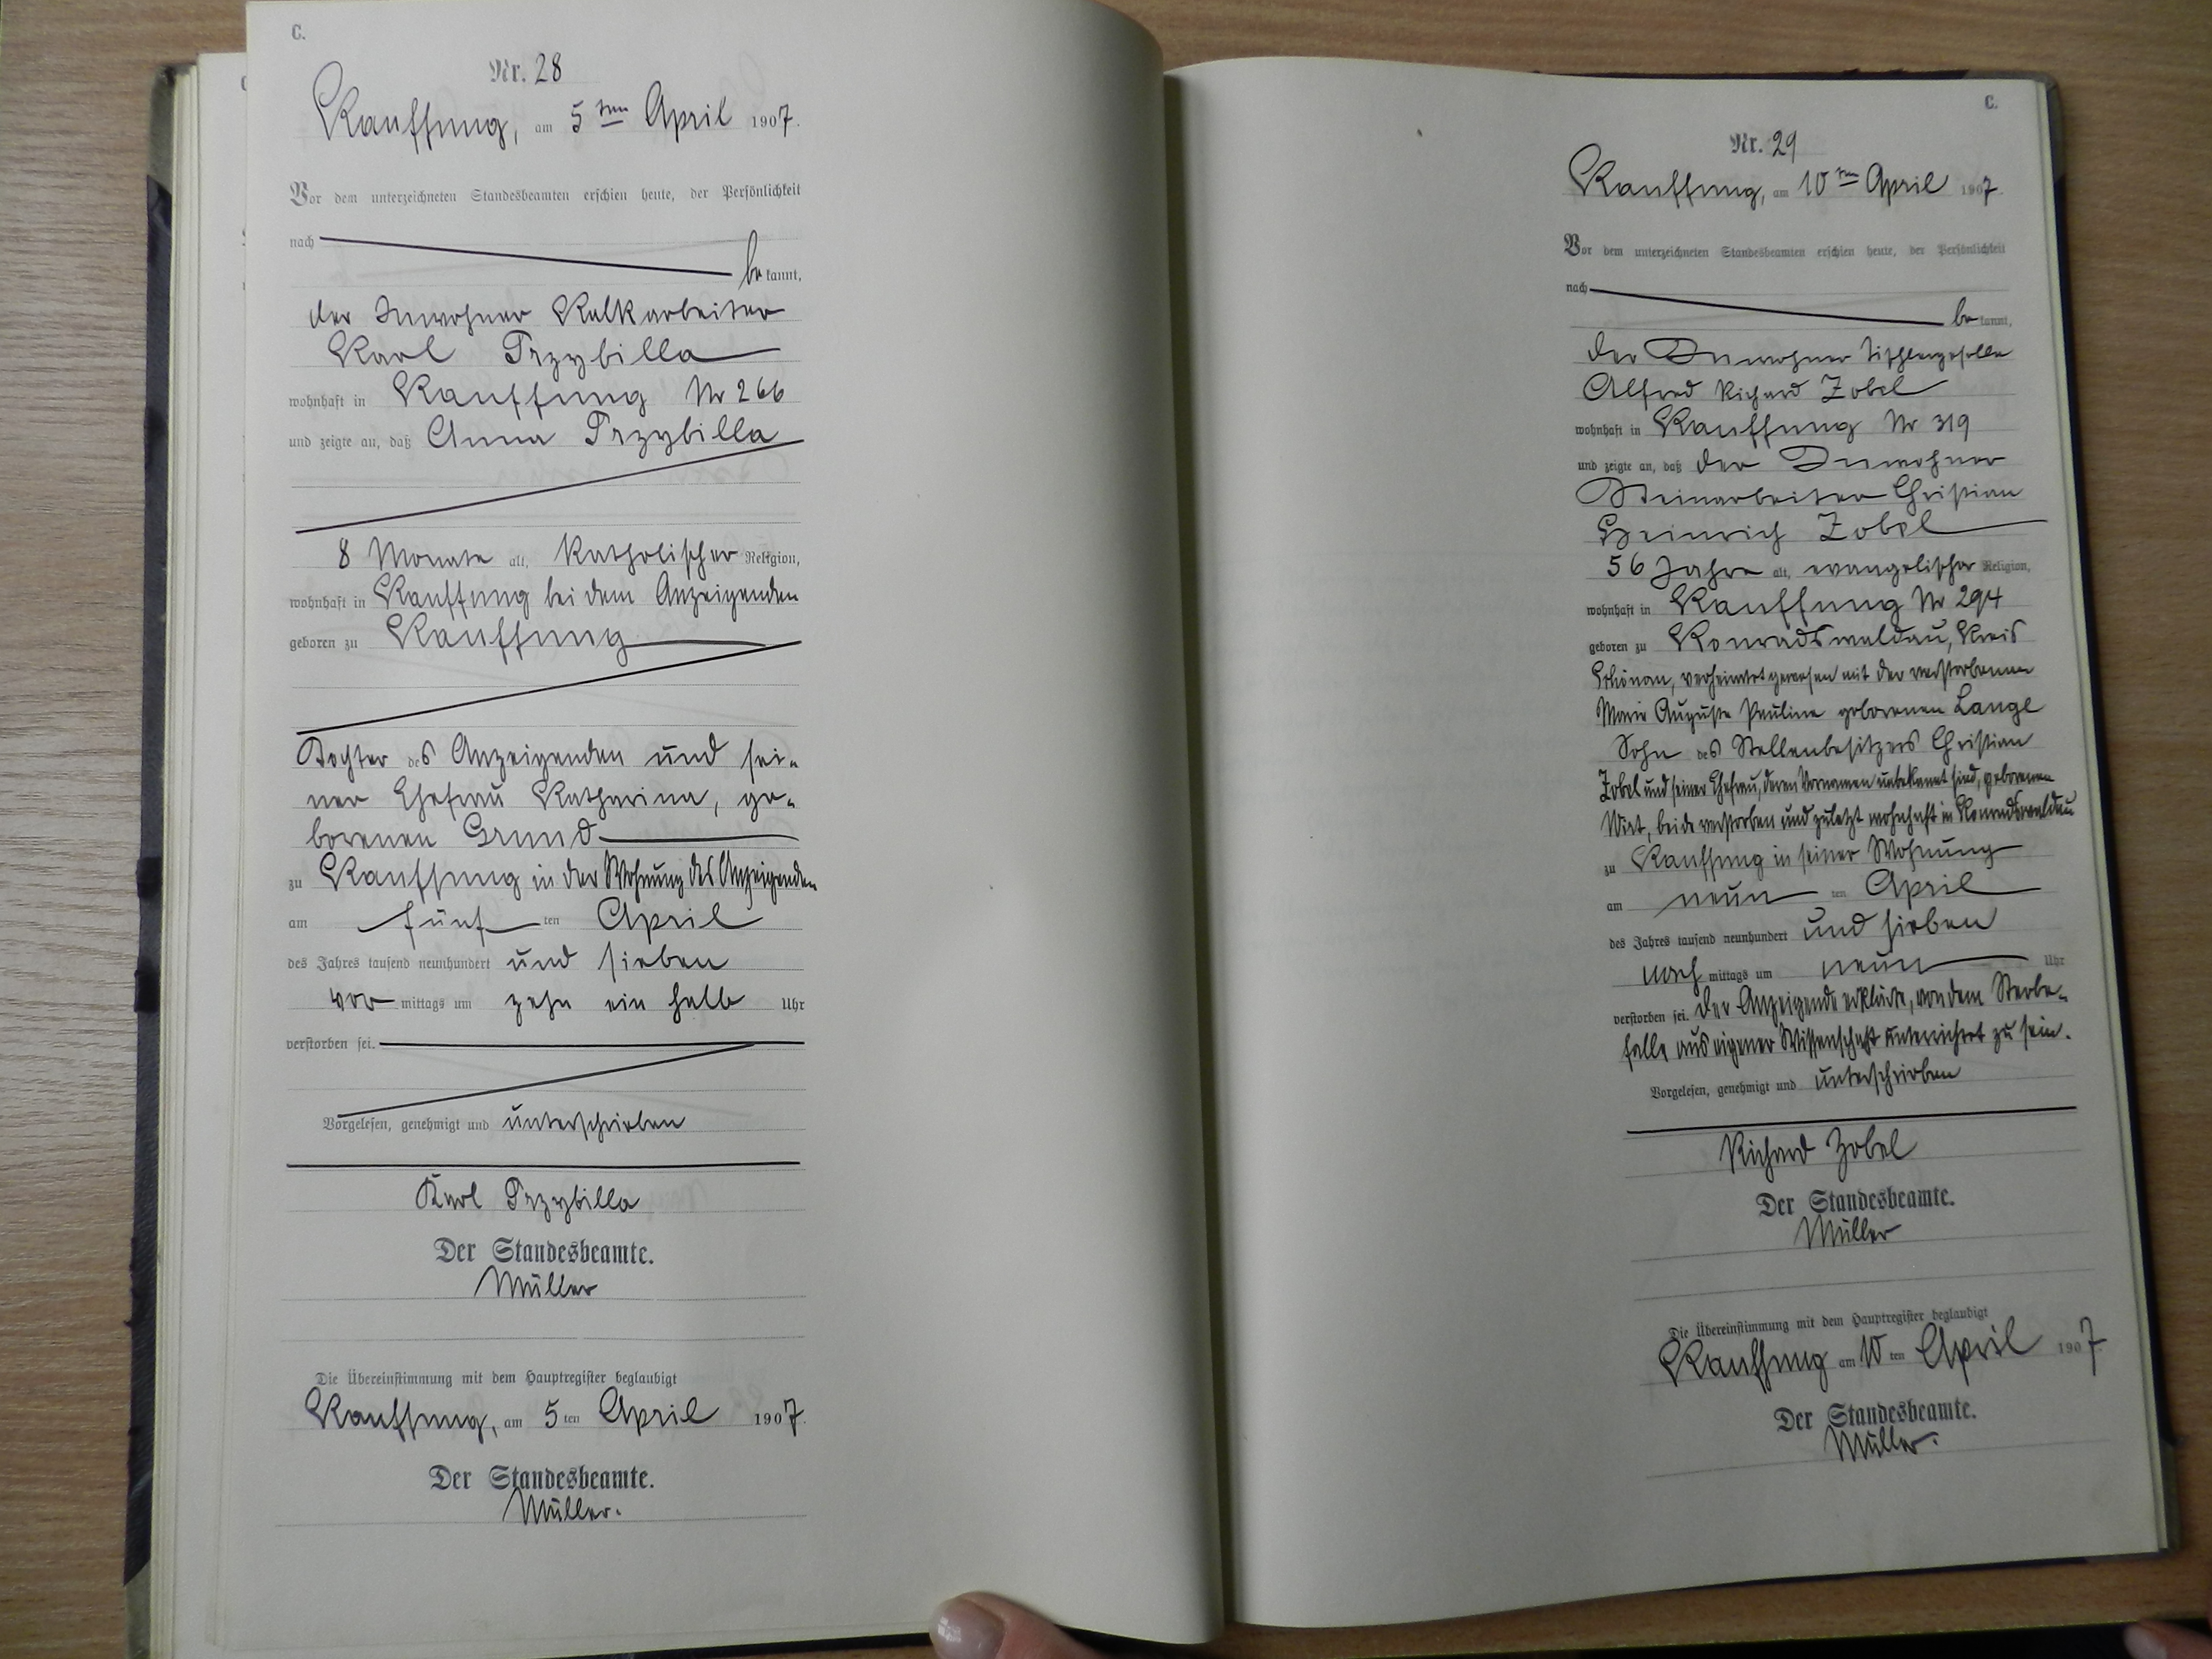 C.
Nr. 28
Kauffung, am 5ten April 1907.
Vor dem unterzeichneten Standesbeamten erschien heute, der Persönlichkeit
nach
bekannt,
der Inwohner Kalkarbeiter
Karl Przybilla
wohnhaft in Kauffung Nr 266
und zeigte an, daß Anna Przybilla
8 Monate alt, katholischer Religion,
wohnhaft in Kauffung bei dem Anzeigenden
geboren zu Kauffung
Tochter des Anzeigenden und sei-
ner Ehefrau Katharina, ge-
borenen Grund
zu Kauffung in der Wohnung des Anzeigenden
am fünf ten April
des Jahres tausend neunhundert und sieben
vor mittags um zehn ein halb Uhr
verstorben sei.
Vorgelesen, genehmigt und unterschrieben
Karl Przybilla
Der Standesbeamte.
Müller
Die Übereinstimmung mit dem Hauptregister beglaubigt
Kauffung, am 5ten April 1907.
Der Standesbeamte.
Müller.
C.
Nr. 29
Kauffung, am 10ten April 1907.
Vor dem unterzeichneten Standesbeamten erschien heute, der Persönlichkeit
nach
bekannt,
der Inwohner Tischlergeselle
Alfred Richard Zobel
wohnhaft in Kauffung Nr 319
und zeigte an, daß der Inwohner
Steinarbeiter Christian
Heinrich Zobel
56 Jahre alt, evangelischer Religion,
wohnhaft in Kauffung Nr 294
geboren zu Konradswaldau, Kreis
Schönau, verheiratet gewesen mit der verstorbenen
Marie Auguste Pauline geborenen Lange
Sohn des Stellenbesitzers Christian
Zobel und seiner Ehefrau, deren Vornamen unbekannt sind, geborenen
Wirt, beide verstorben und zuletzt wohnhaft in Konradswaldau
zu Kauffung in seiner Wohnung
am neun ten April
des Jahres tausend neunhundert und sieben
nach mittags um neun Uhr
verstorben sei. Der Anzeigende erklärte, von dem Sterbe-
falle aus eigener Wissenschaft unterrichtet zu sein.
Vorgelesen, genehmigt und unterschrieben
Richard Zobel
Der Standesbeamte.
Müller
Die Übereinstimmung mit dem Hauptregister beglaubigt
Kauffung am 10ten April 1907.
Der Standesbeamte.
Müller.